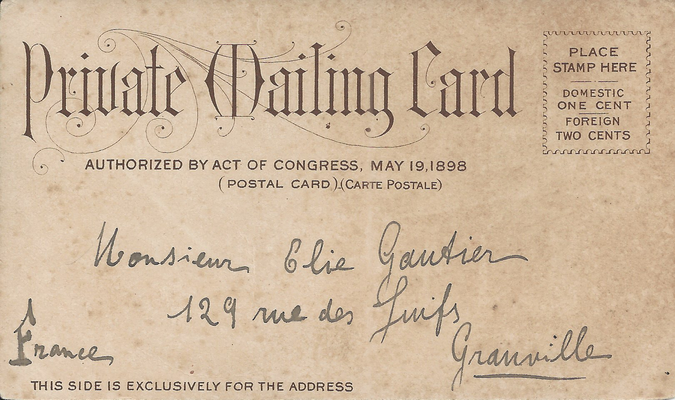 Private Mailing Card
PLACE
STAMP HERE
DOMESTIC
ONE CENT
FOREIGN
TWO CENTS
AUTHORIZED BY ACT OF CONGRESS, MAY 19, 1898
(POSTAL CARD).(CARTE POSTALE)
Monsieur Elie Gautier
129 rue des Juifs
Granville
France
THIS SIDE IS EXCLUSIVELY FOR THE ADDRESS